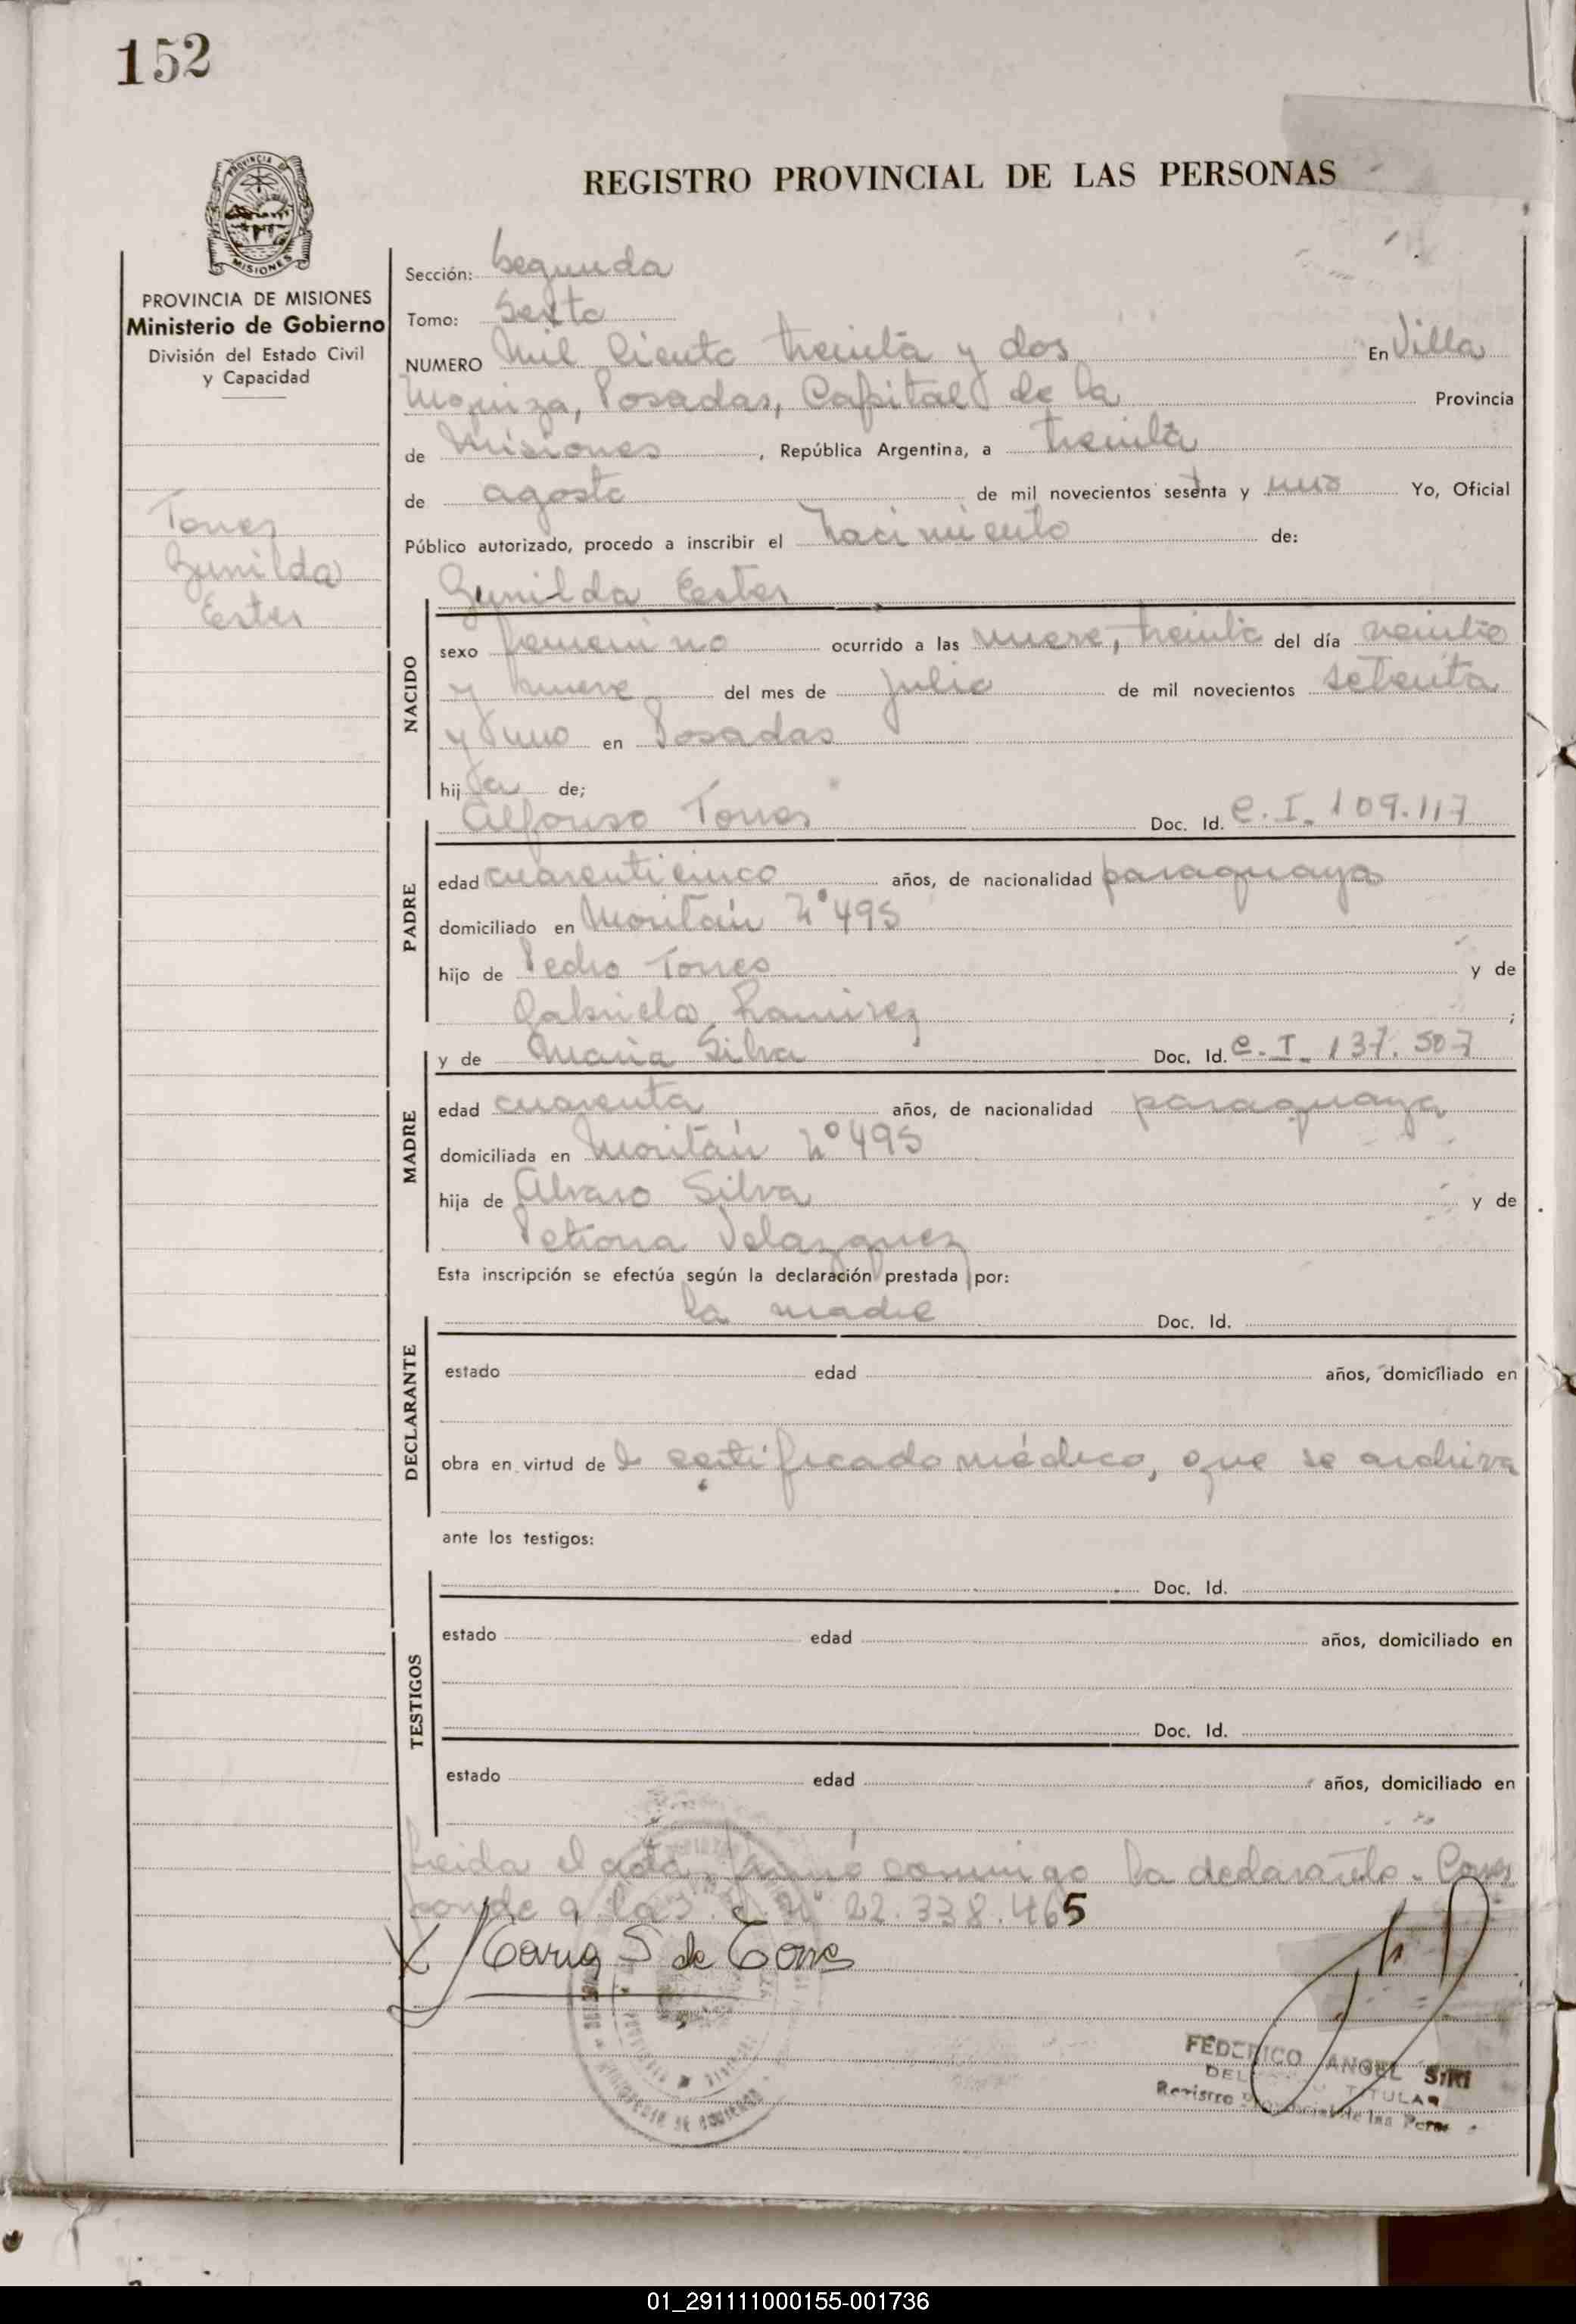 152
REGISTRO PROVINCIAL DE LAS PERSONAS
PROVINCIA DE
MISIONES
PROVINCIA DE MISIONES
Ministerio de Gobierno
División del Estado Civil
y Capacidad
Torres
Gunilda
Ester
Sección: Segunda
Tomo: Sexto
NUMERO Mil Ciento treinta y dos En Villa
Urquiza, Posadas, Capital de la Provincia
de Misiones, República Argentina, a treinta
de agosto de mil novecientos setenta y uno Yo, Oficial
Público autorizado, procedo a inscribir el nacimiento de:
Gunilda Ester
NACIDO
sexo femenino ocurrido a las nueve, treinta del día veinti
y nueve del mes de julio de mil novecientos setenta
y uno en Posadas
hij a de;
Alfonso Torres Doc. Id. C. I. 109.117
PADRE
edad cuarenticinco años, de nacionalidad paraguaya
domiciliado en Nº 495
hijo de Pedro Torres y de
Gabriela Ramirez ;
y de Maria Silva Doc. Id. C. I. 137.507
MADRE
edad cuarenta años, de nacionalidad paraguaya
domiciliada en Nº 495
hija de Alvaro Silva y de
Petrona Velazquez
Esta inscripción se efectúa según la declaración prestada por:
la madre Doc. Id.
DECLARANTE
estado edad años, domiciliado en
obra en virtud de l certificado médico, que se archiva
ante los testigos:
Doc. Id.
TESTIGOS
estado edad años, domiciliado en
Doc. Id.
estado edad años, domiciliado en
Leida el acta, firmó conmigo la declarante. Corres
ponde a la Nº 22.338.465
X Maria S de Torres
FEDERICO ANGEL SIRI
DELEGADO TITULAR
Registro Provincial de las Pers
01_291111000155-001736